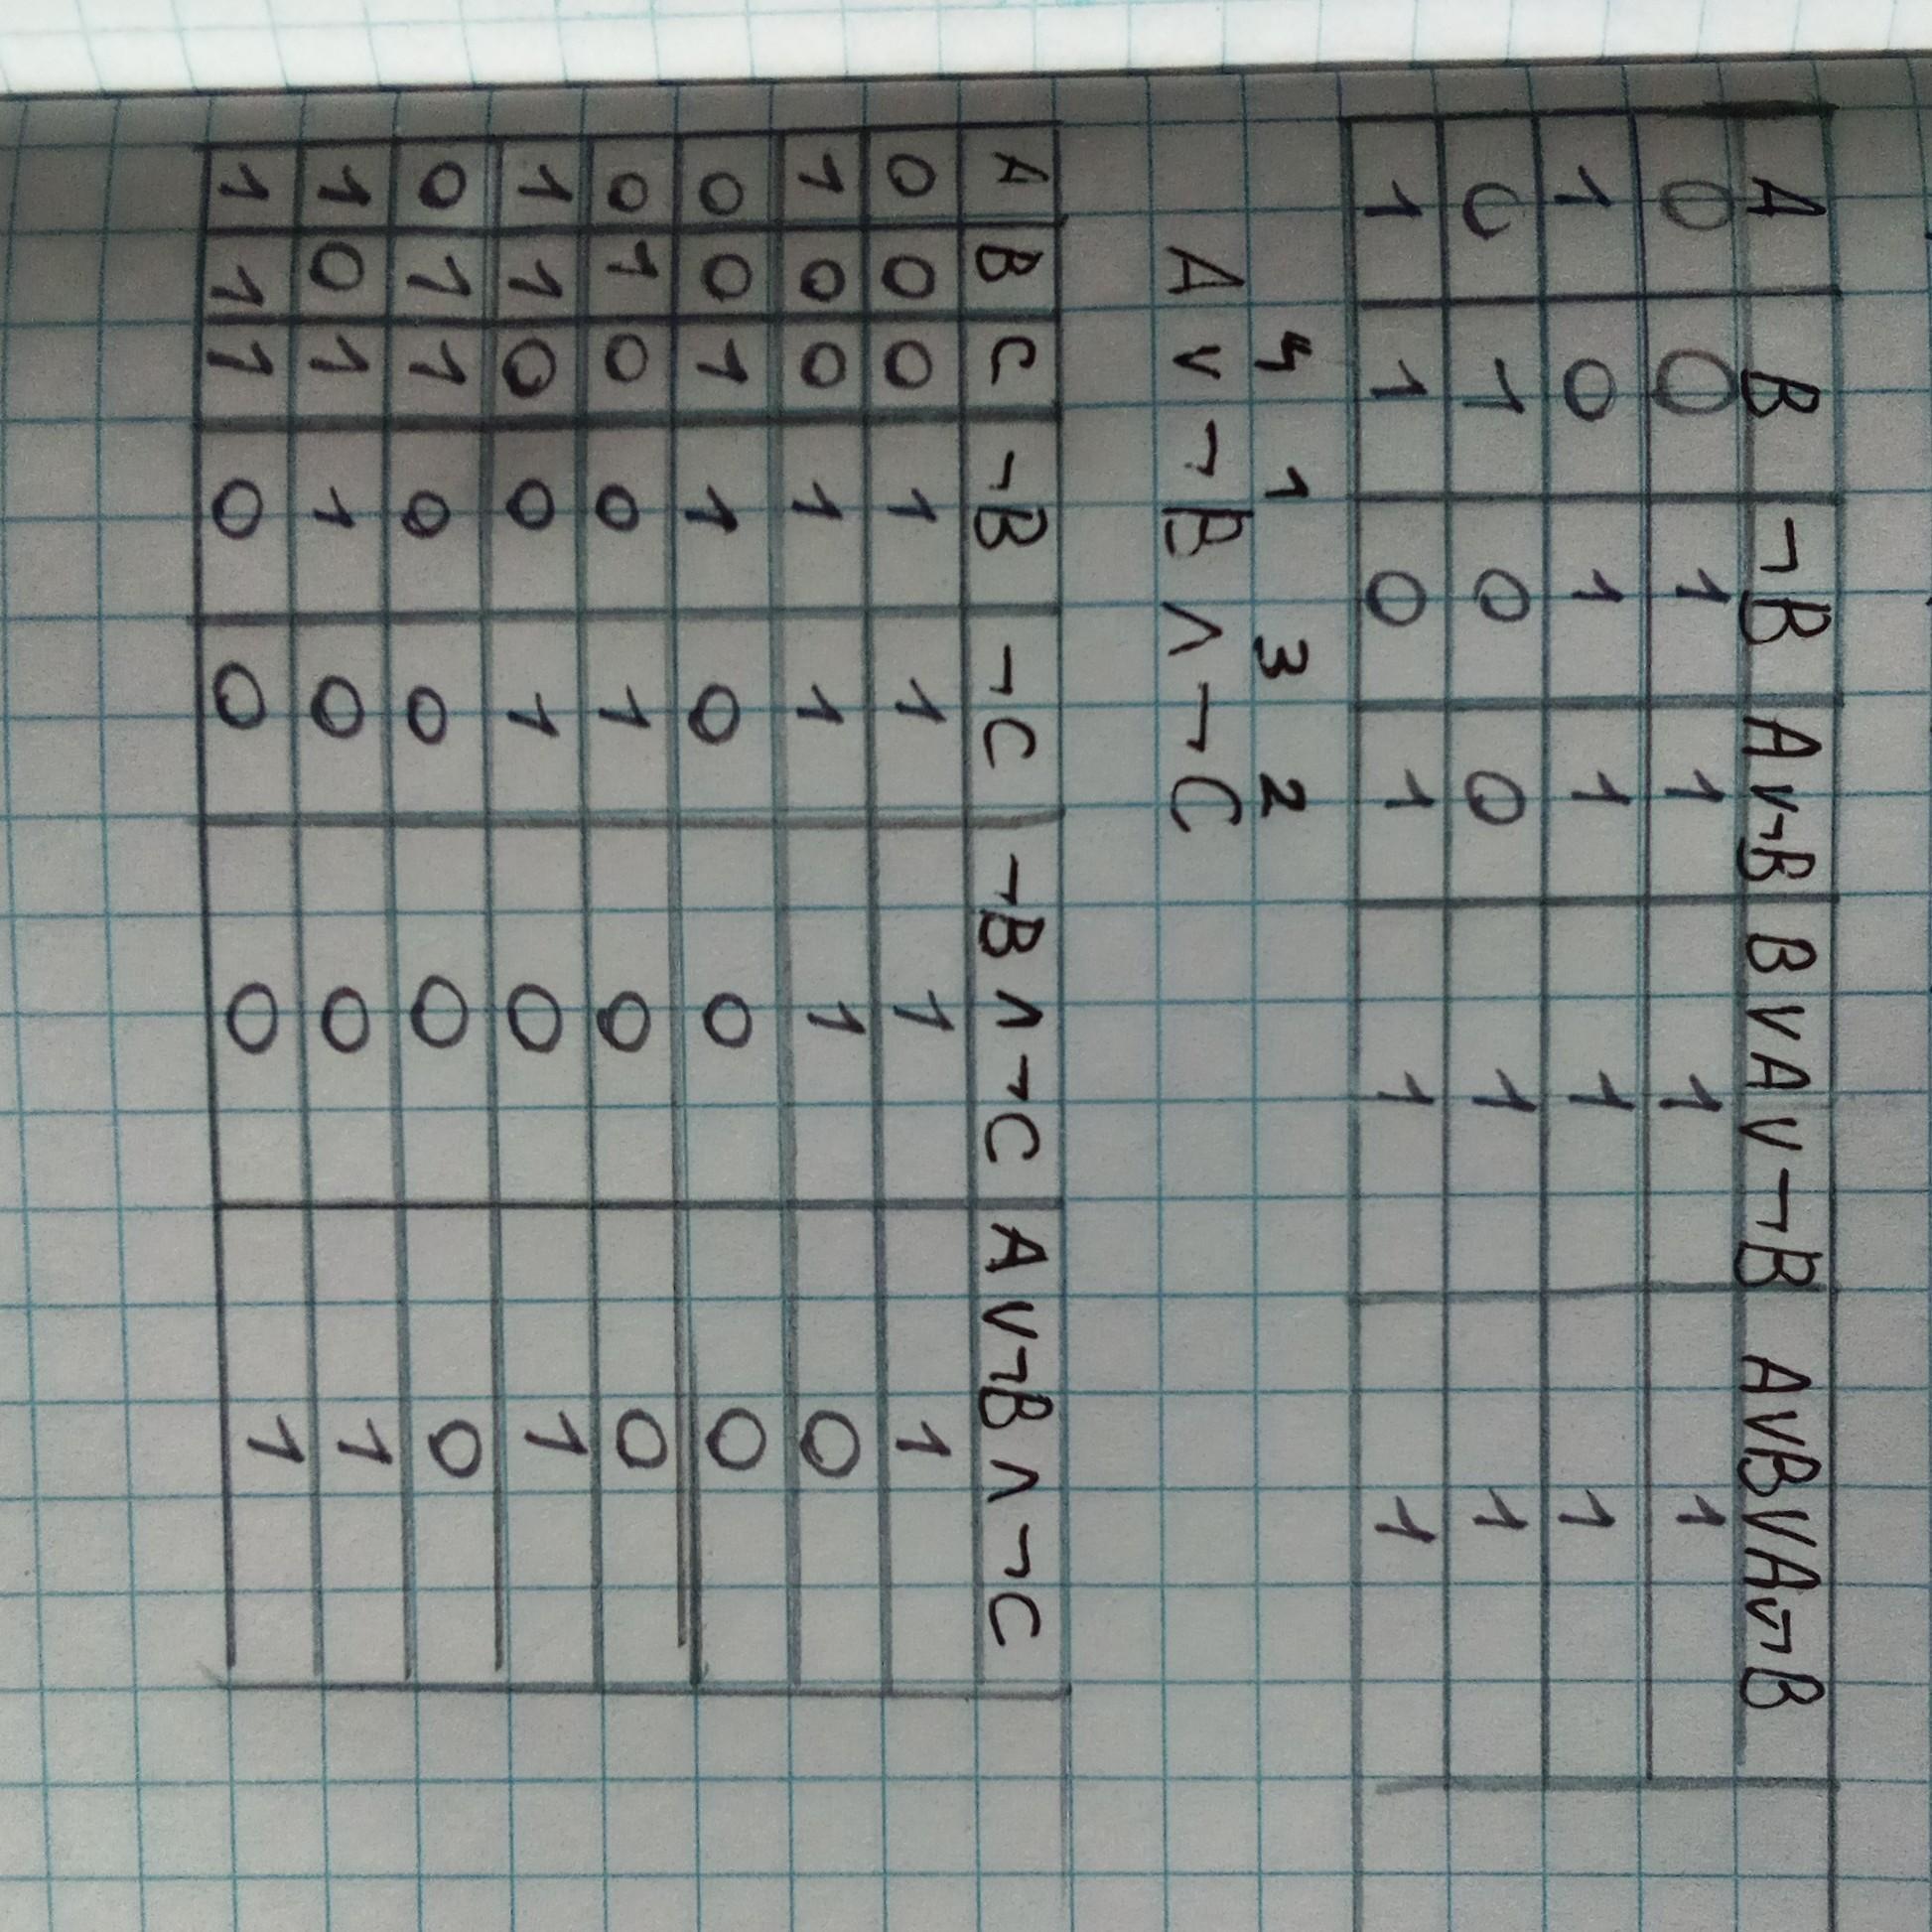 A B ¬B Av¬B BVAV¬B AVBVAv¬B
0 0 1 1 1 1
1 0 1 1 1 1
0 1 0 0 1 1
1 1 0 1 1 1
4 1 3 2
A v ¬B ∧ ¬C
A B C ¬B ¬C ¬B ∧ ¬C A V¬B ∧ ¬C
0 0 0 1 1 1 1
1 0 0 1 1 1 0
0 0 1 1 0 0 0
0 1 0 0 1 0 0
1 1 0 0 1 0 1
0 1 1 0 0 0 0
1 0 1 1 0 0 1
1 1 1 0 0 0 1